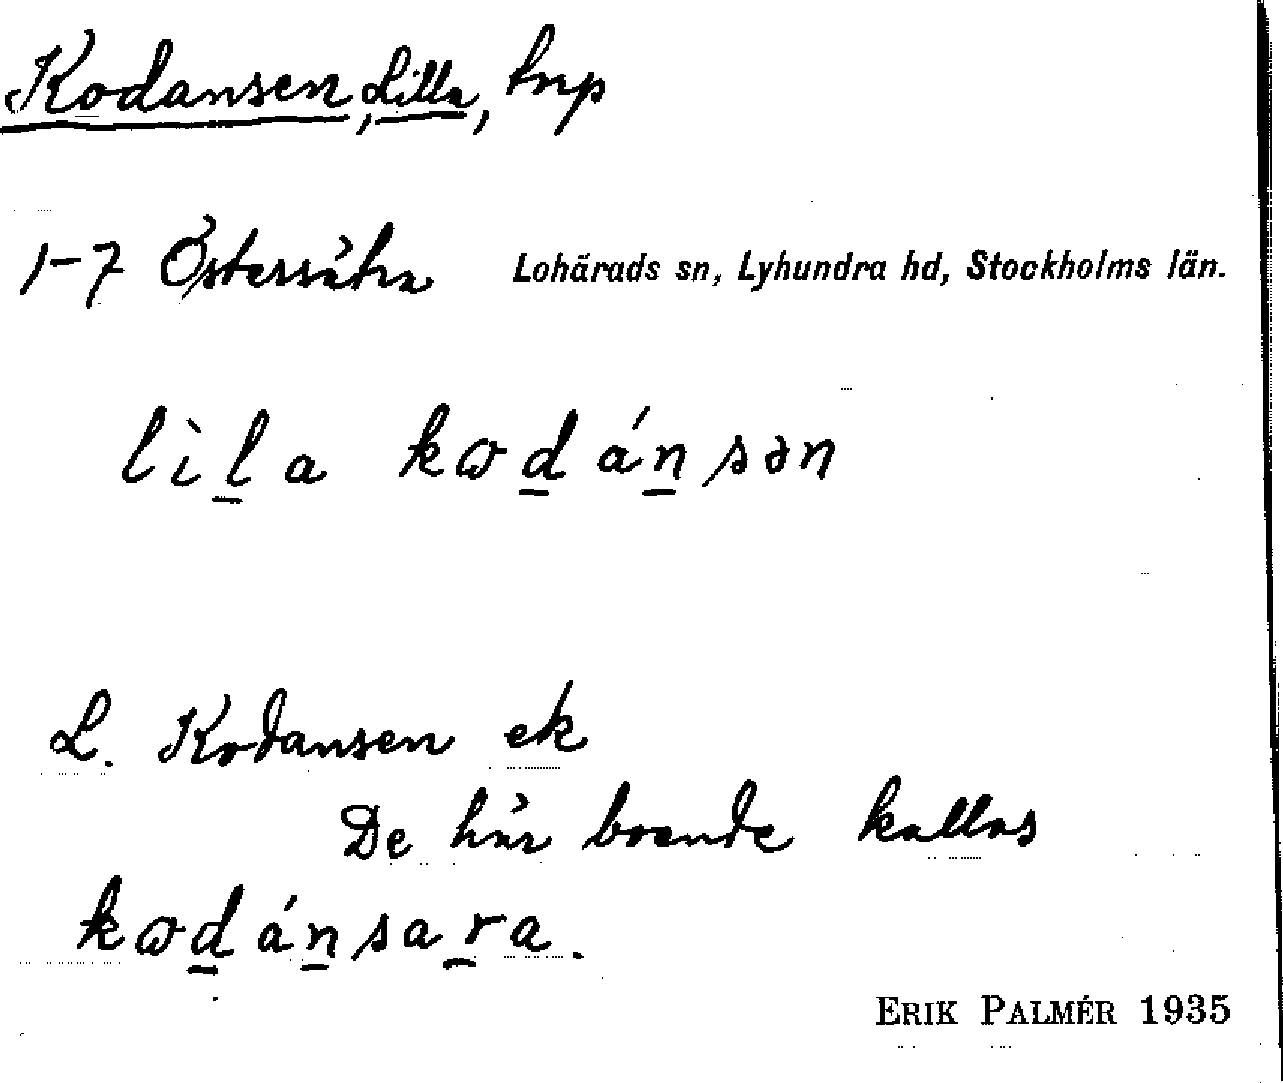 Kodansen, Lilla, trp
1-7 Östersåtra Lohärads sn, Lyhundra hd, Stockholms län.
lìl̲a kɷd̲án̲sən
L. Kodansen ek
De här boende kallas
kɷd̲án̲sar̲a.
ERIK PALMÉR 1935